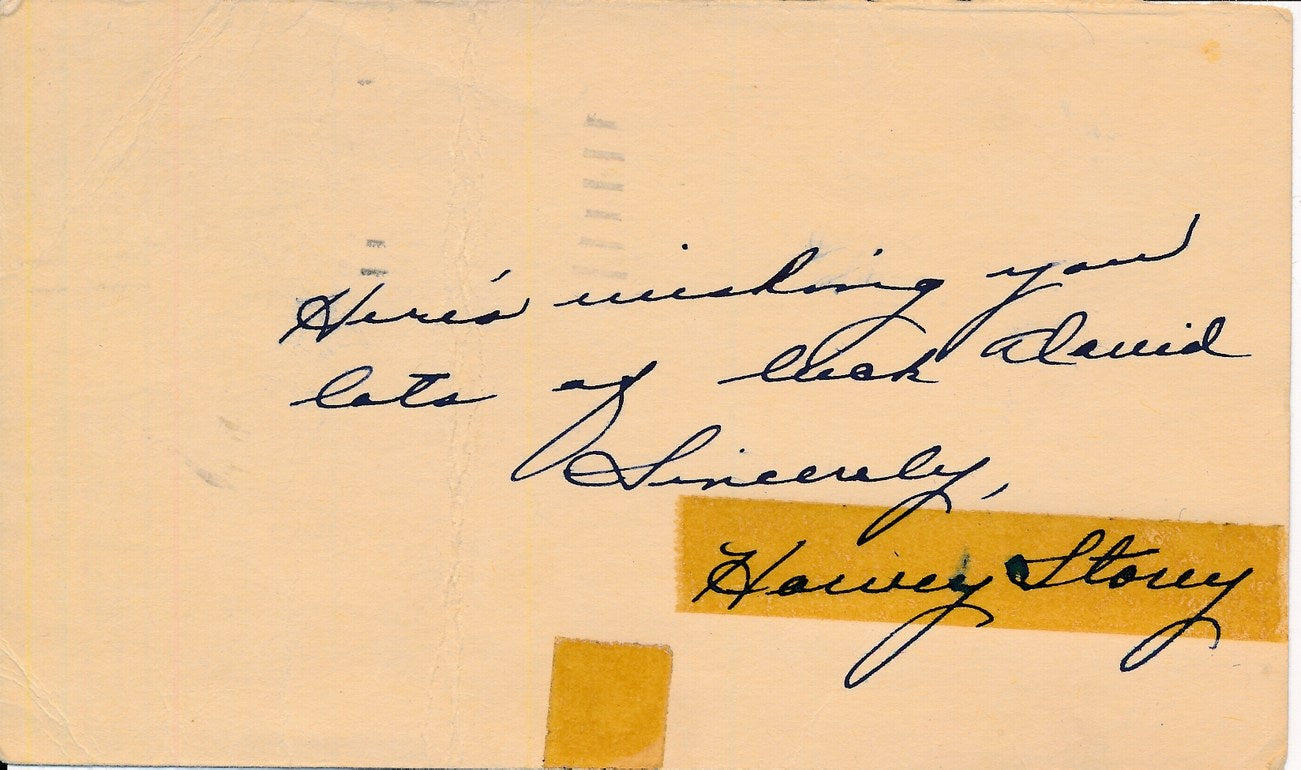 Here's wishing you
lots of luck David
Sincerely,
Harvey Storey